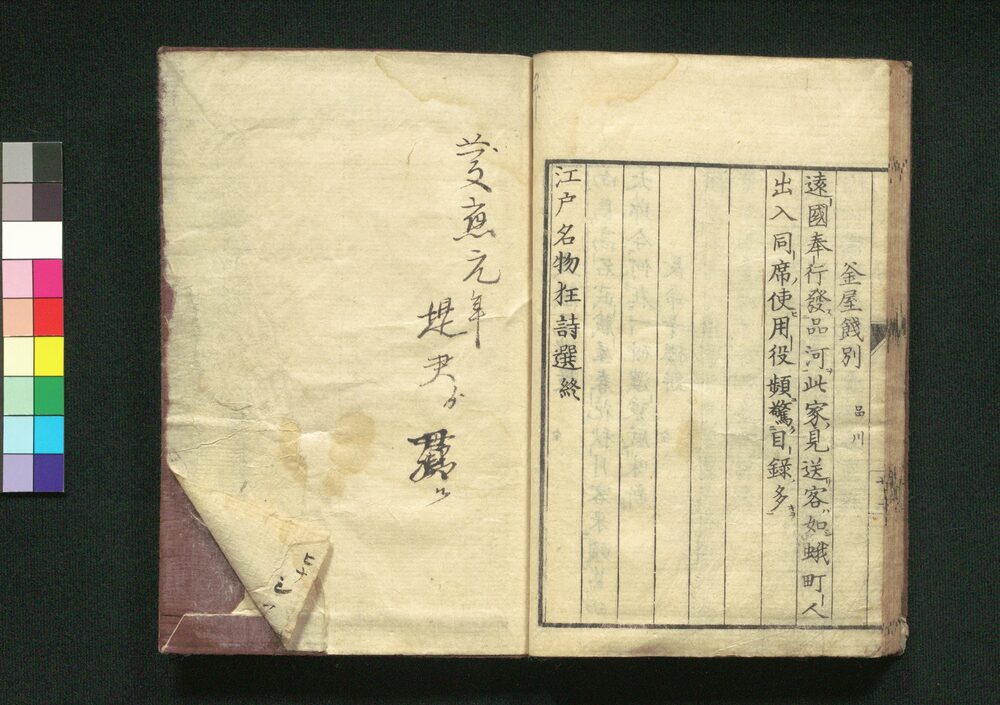 釜屋餞別 品川
遠國奉行發品河此家見送客如蛾町人
出入同席使用役頻驚目錄多
江戸名物狂詩選終
慶應元年